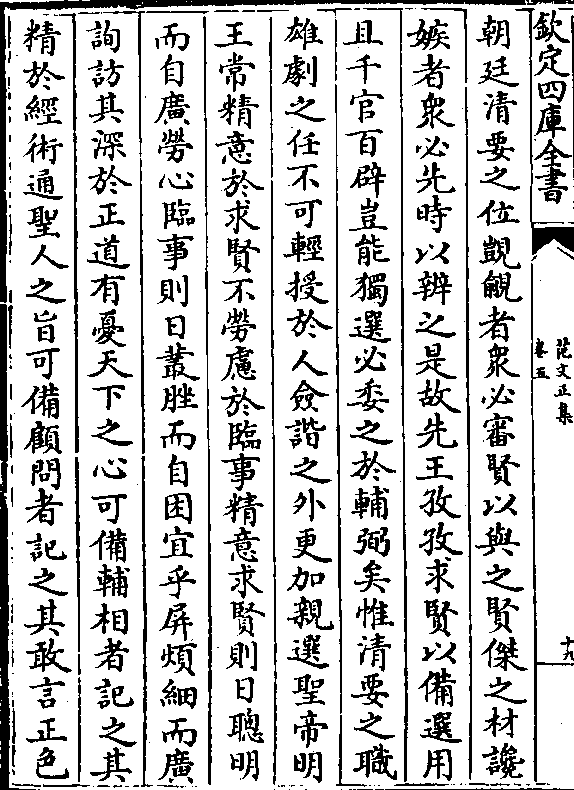 欽定四庫全書
范文正集
卷五
十九
朝廷清要之位覬覦者衆必審賢以與之賢傑之材讒
嫉者衆必先時以辨之是故先王孜孜求賢以備選用
且千官百辟豈能獨選必委之於輔弼矣惟清要之職
雄劇之任不可輕授於人僉諧之外更加親選聖帝明
王常精意於求賢不勞慮於臨事精意求賢則日聰明
而自廣勞心臨事則日叢脞而自困宜乎屏煩細而廣
詢訪其深於正道有憂天下之心可備輔相者記之其
精於經術通聖人之旨可備顧問者記之其敢言正色